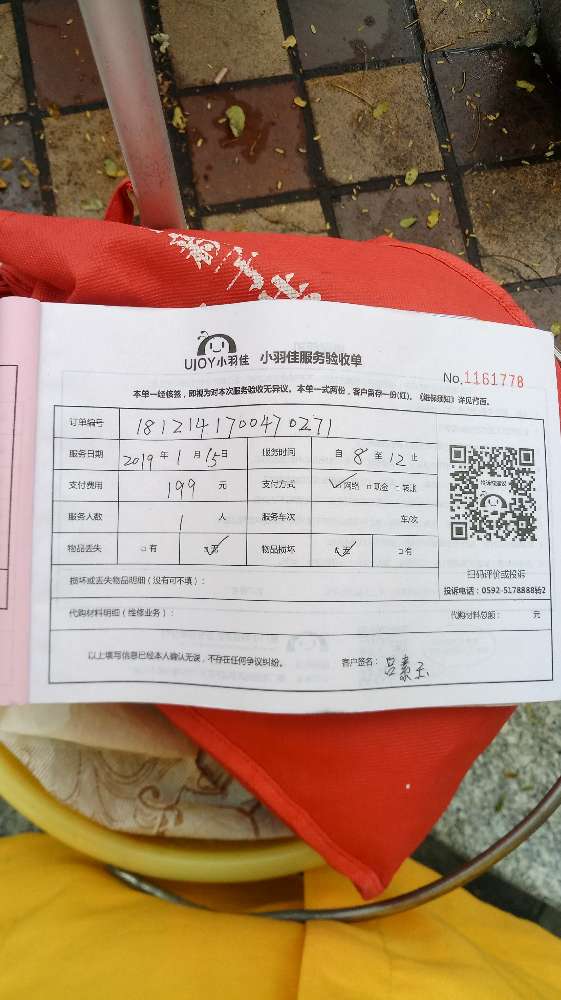 UJOY小羽佳 小羽佳服务验收单
No.1161778
本单一经核签，即视为对本次服务验收无异议。本单一式两份，客户留存一份(红)。《维保须知》详见背面。
订单编号 1812141700470271
服务日期 2019年1月15日 服务时间 自8至12止
支付费用 199元 支付方式 ✓网络 □现金 □转账
服务人数 1人 服务车次 车/次
物品丢失 □有 ✓无 物品损坏 ✓无 □有
扫码评价或投诉
损坏或丢失物品明细（没有可不填）：
投诉电话：0592-5178888转2
代购材料明细（维修业务）： 代购材料总额： 元
以上填写信息已经本人确认无误，不存在任何争议纠纷。 客户签名：吕素玉